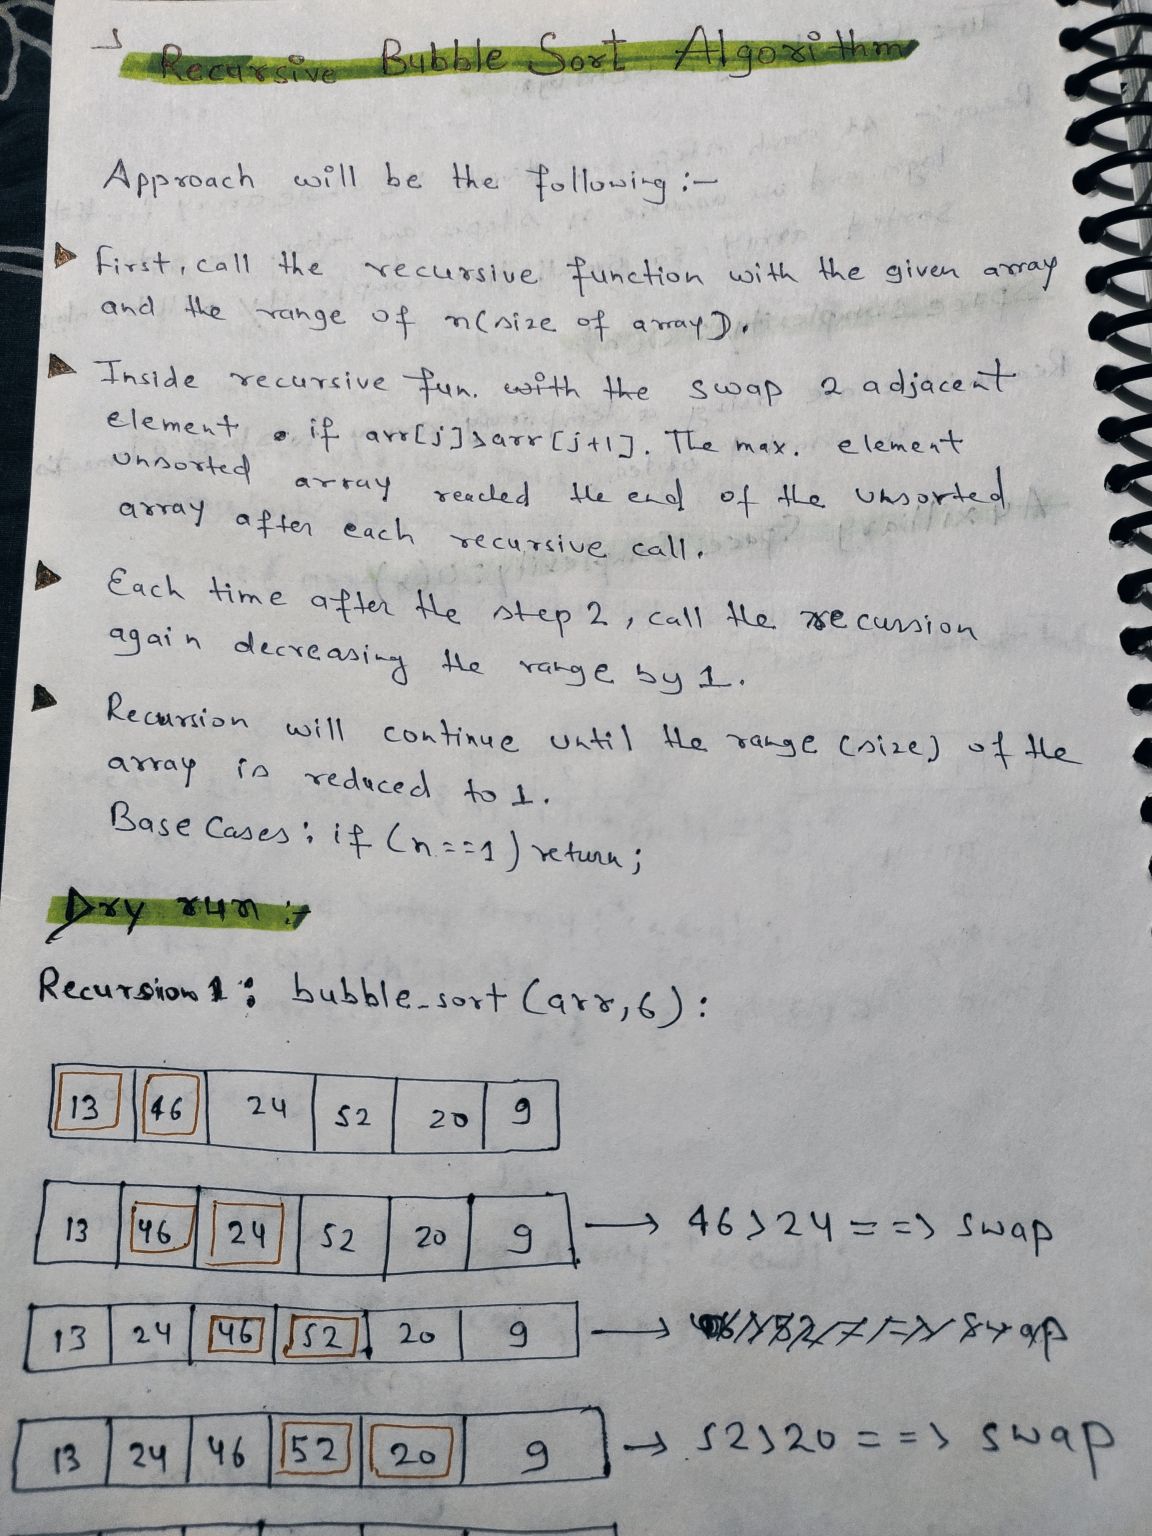 Recursive Bubble Sort Algorithm
Approach will be the following :-
First, call the recursive function with the given array
and the range of n(size of array).
Inside recursive fun. with the swap 2 adjacent
element . if arr[j]>arr[j+1]. The max. element
unsorted array reached the end of the unsorted
array after each recursive call.
Each time after the step 2, call the recussion
again decreasing the range by 1.
Recursion will continue until the range (size) of the
array is reduced to 1.
Base Cases: if (n==1) return;
Dry run :-
Recursion 1: bubble_sort (arr,6):
13 46 24 52 20 9
13 46 24 52 20 9 → 46>24 ==> swap
13 24 46 52 20 9 →
13 24 46 52 20 9 → 52>20 ==> swap